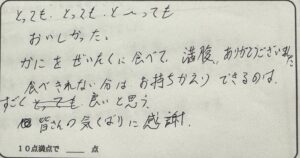 とっても、とっても、と〜っても
おいしかった。
かにをぜいたくに食べて、満腹。ありがとうございました
食べきれない分はお持ちかえりできるのは、
すごく 良いと思う。
皆さんの気くばりに感謝。
10点満点で ____ 点